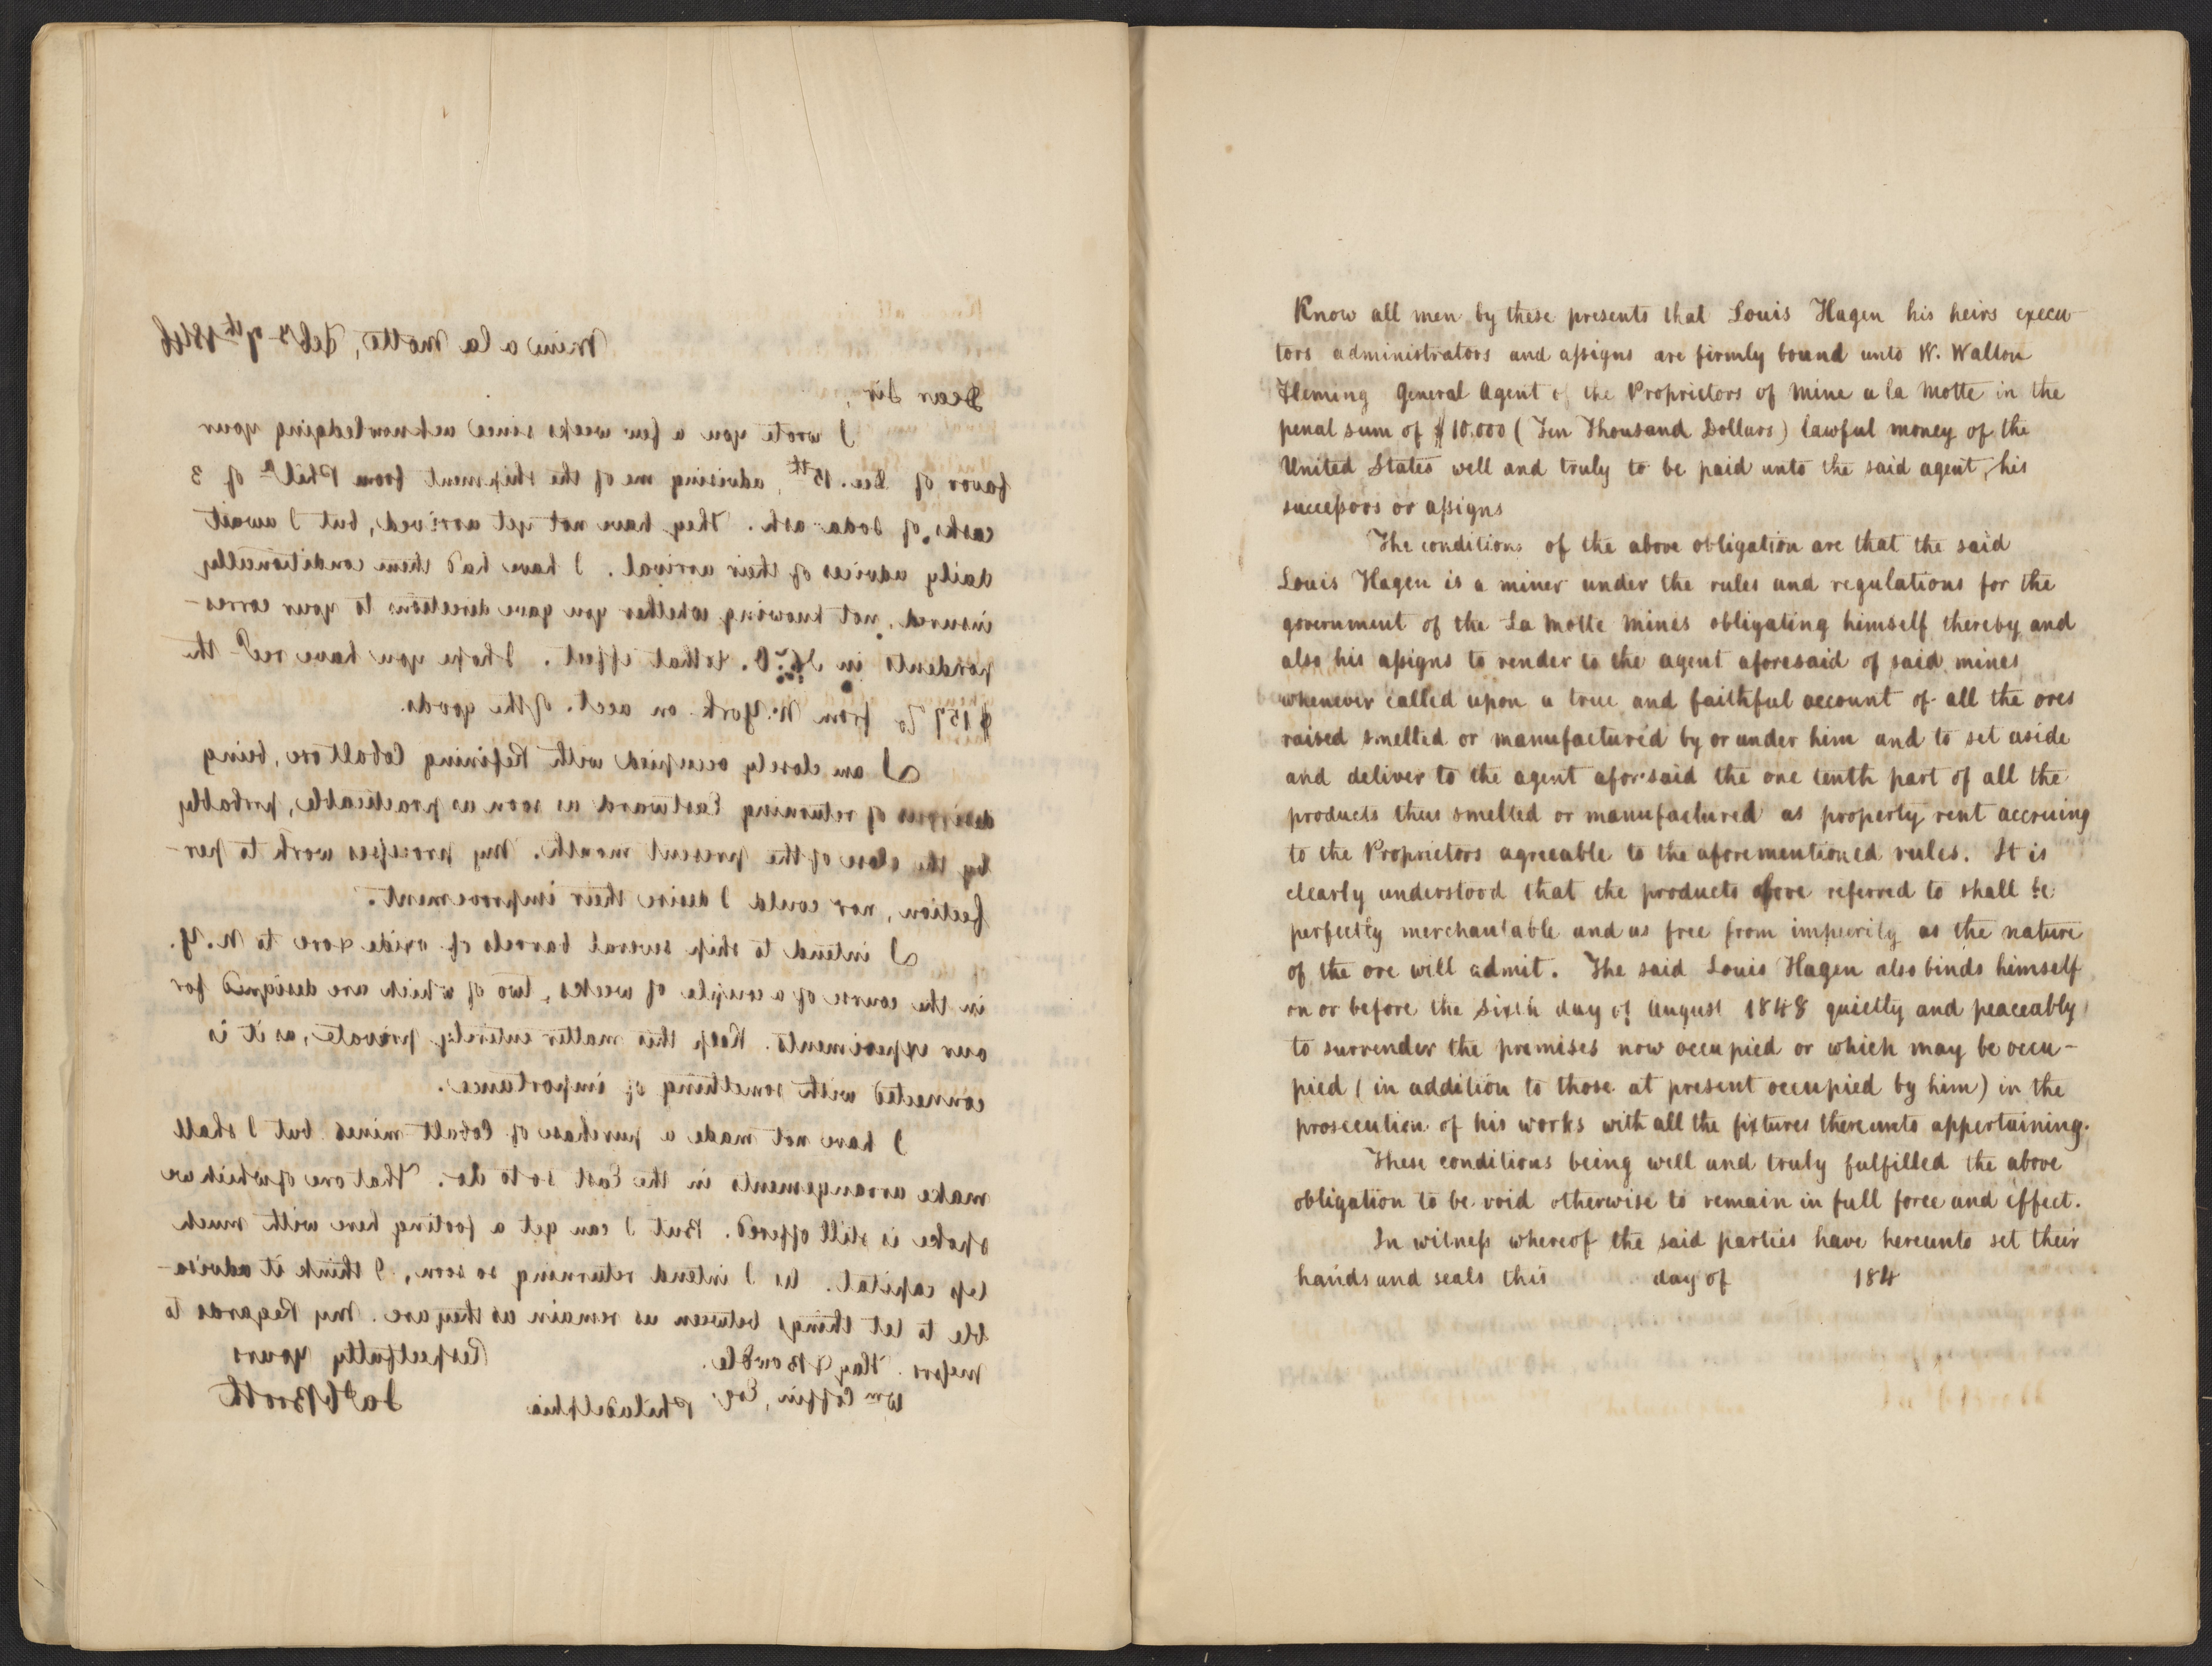 Mine a la Motte, Feby 7th 1846
Dear Sir,
I wrote you a few weeks since acknowledging your
favor of Dec. 15th, advising me of the shipment from Phila of 3
casks of soda-ash. They have not yet arrived, but I await
daily advices of their arrival. I have had them conditionally
insured, not knowing whether you gave directions to your corres-
pondents in to that effect. I hope you have recd the
$157 from N. York on acct. of the goods.
I am closely occupied with Refining Cobalt ore, being
desirous of returning Eastward as soon as practicable, probably
by the close of the present month. My processes work to per-
fection, nor could I desire their improvement.
I intend to ship several barrels of oxide & ore to N.Y.
in the course of a couple of weeks, two of which are designed for
our experiments. Keep this matter entirely private, as it is
connected with something of importance.
I have not made a purchase of Cobalt mines but I shall
make arrangements in the East so to do. That one of which we
spoke is still offered. But I can get a footing here with much
less capital. As I intend returning so soon, I think it advisa-
ble to let things between us remain as they are. My Regards to
Messrs. Hay & Bowdle. Respectfully yours
Wm Coffin, Esq. Philadelphia Jas C Booth
Know all men by these presents that Louis Hagen his heirs execu-
tors administrators and assigns are firmly bound unto W. Walton
Fleming General Agent of the Proprietors of Mine a la Motte in the
penal sum of $10.000 (Ten Thousand Dollars) lawful money of the
United States well and truly to be paid unto the said agent, his
successors or assigns
The conditions of the above obligation are that the said
Louis Hagen is a miner under the rules and regulations for the
government of the La Motte Mines obligating himself thereby and
also his assigns to render to the agent aforesaid of said mines
whenever called upon a true and faithful account of all the ores
raised smelted or manufactured by or under him and to set aside
and deliver to the agent aforsaid the one tenth part of all the
products thus smelted or manufactured as property rent accruing
to the Proprietors agreeable to the aforementioned rules. It is
clearly understood that the products above referred to shall be
perfectly merchantable and as free from impurity as the nature
of the ore will admit. The said Louis Hagen also binds himself
on or before the sixth day of August 1848 quietly and peaceably
to surrender the premises now occupied or which may be occu-
pied (in addition to those at present occupied by him) in the
prosecution of his works with all the fixtures thereunto appertaining.
These conditions being well and truly fulfilled the above
obligation to be void otherwise to remain in full force and effect.
In witness whereof the said parties have hereunto set their
hands and seals this day of 184